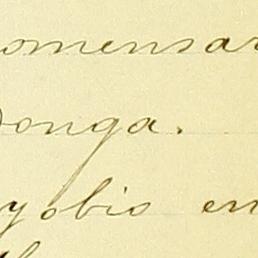 omensar
onga.
yobio en